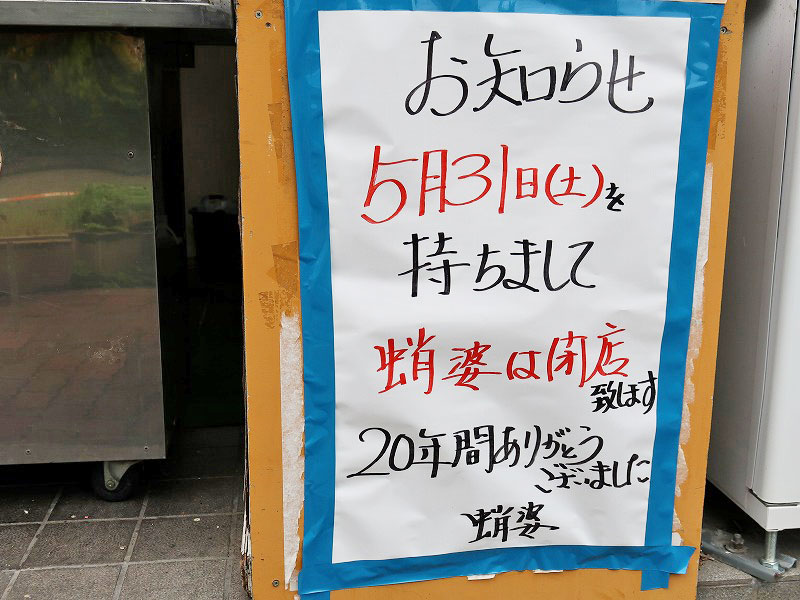 お知らせ
5月31日(土)を
持ちまして
蛸婆は閉店
致します
20年間ありがとう
ございました
蛸婆